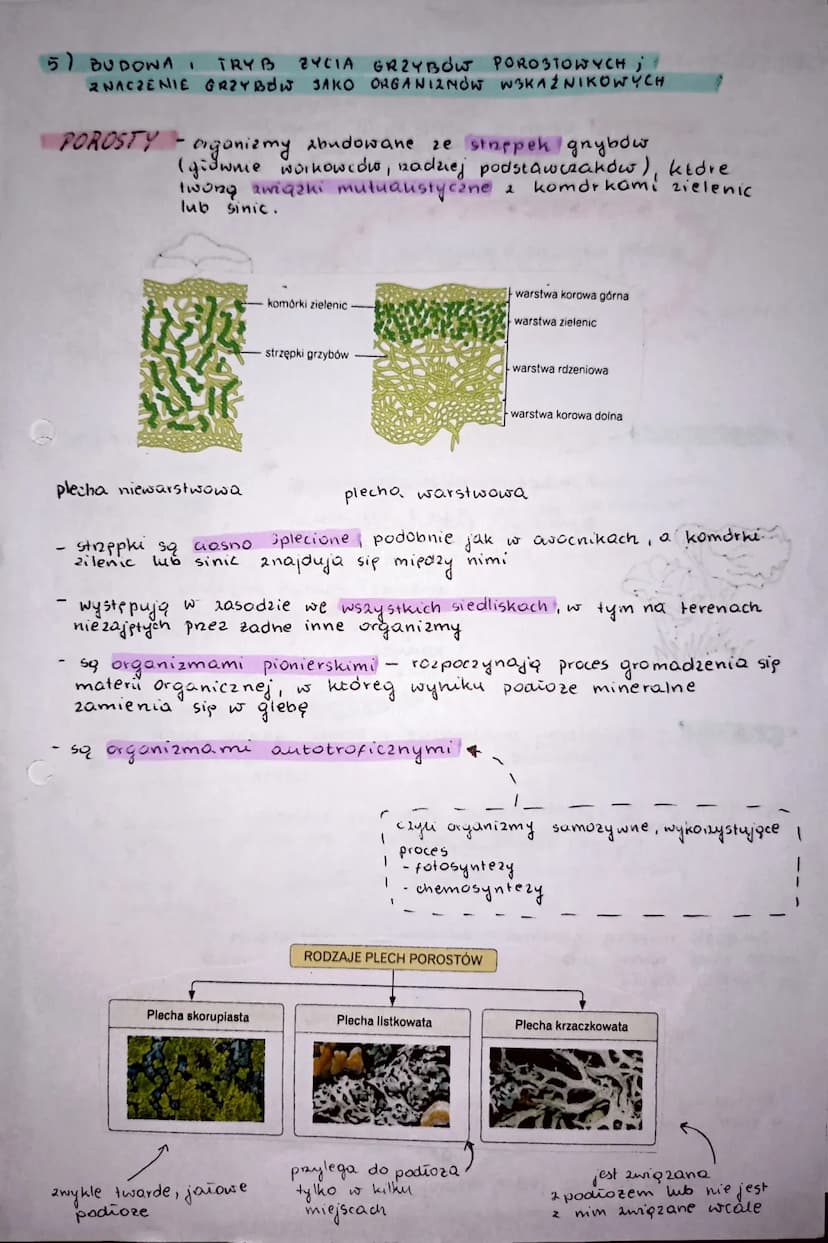 5) BUDOWA I TRYB ŻYCIA GRZYBÓW POROSTOWYCH ;
ZNACZENIE GRZYBÓW JAKO ORGANIZMÓW WSKAŹNIKOWYCH
POROSTY - organizmy zbudowane ze strzępek grzybów
(głównie workowców, rzadziej podstawczaków), które
tworzą związki mutualistyczne z komórkami zielenic
lub sinic.
komórki zielenic
strzępki grzybów
warstwa korowa górna
warstwa zielenic
warstwa rdzeniowa
warstwa korowa dolna
plecha niewarstwowa
plecha warstwowa
- strzępki są ciasno splecione, podobnie jak w owocnikach, a komórki
zilenic lub sinic znajdują się między nimi
- występują w zasadzie we wszystkich siedliskach, w tym na terenach
niezajętych przez żadne inne organizmy
- są organizmami pionierskimi - rozpoczynają proces gromadzenia się
materii organicznej, w któreg wyniku podłoże mineralne
zamienia się w glebę
- są organizmami autotroficznymi
czyli organizmy samożywne, wykorzystujące
proces
- fotosyntezy
- chemosyntezy
RODZAJE PLECH POROSTÓW
Plecha skorupiasta
Plecha listkowata
Plecha krzaczkowata
zwykle twarde, jałowe
podłoże
przylega do podłoża
tylko w kilku
miejscach
jest związana
z podłożem lub nie jest
z nim związane wcale